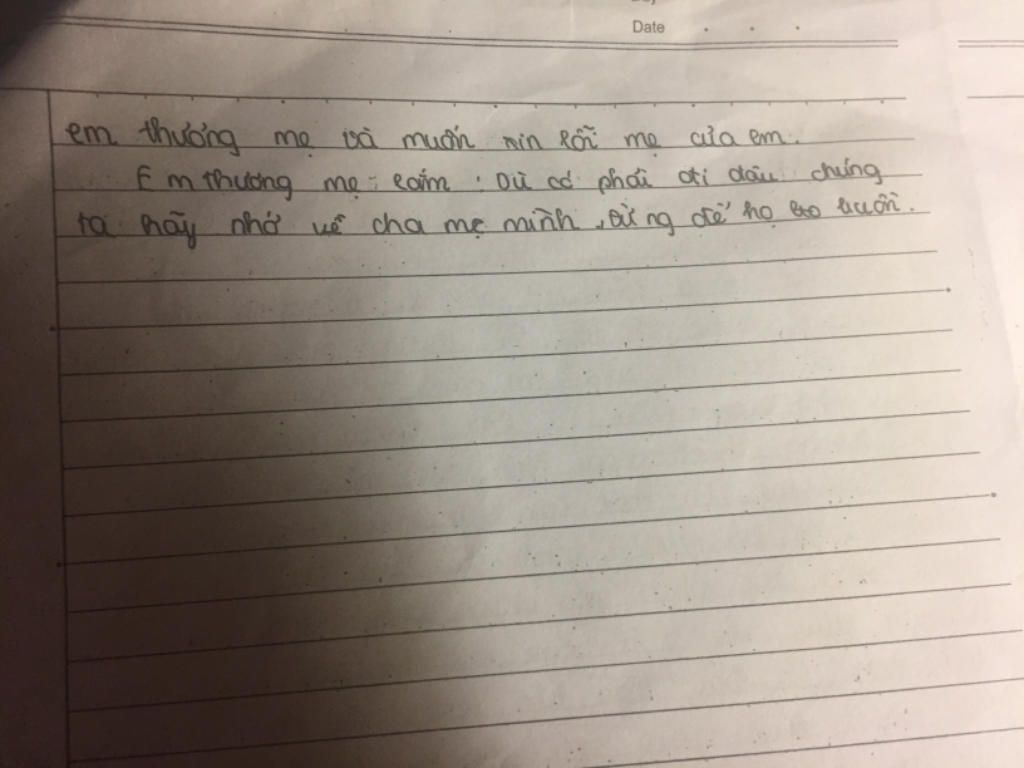 Date
em thương mẹ và muốn xin lỗi mẹ của em.
Em thương mẹ lắm. Dù có phải đi đâu chúng
ta hãy nhớ về cha mẹ mình, đừng để họ lo buồn.